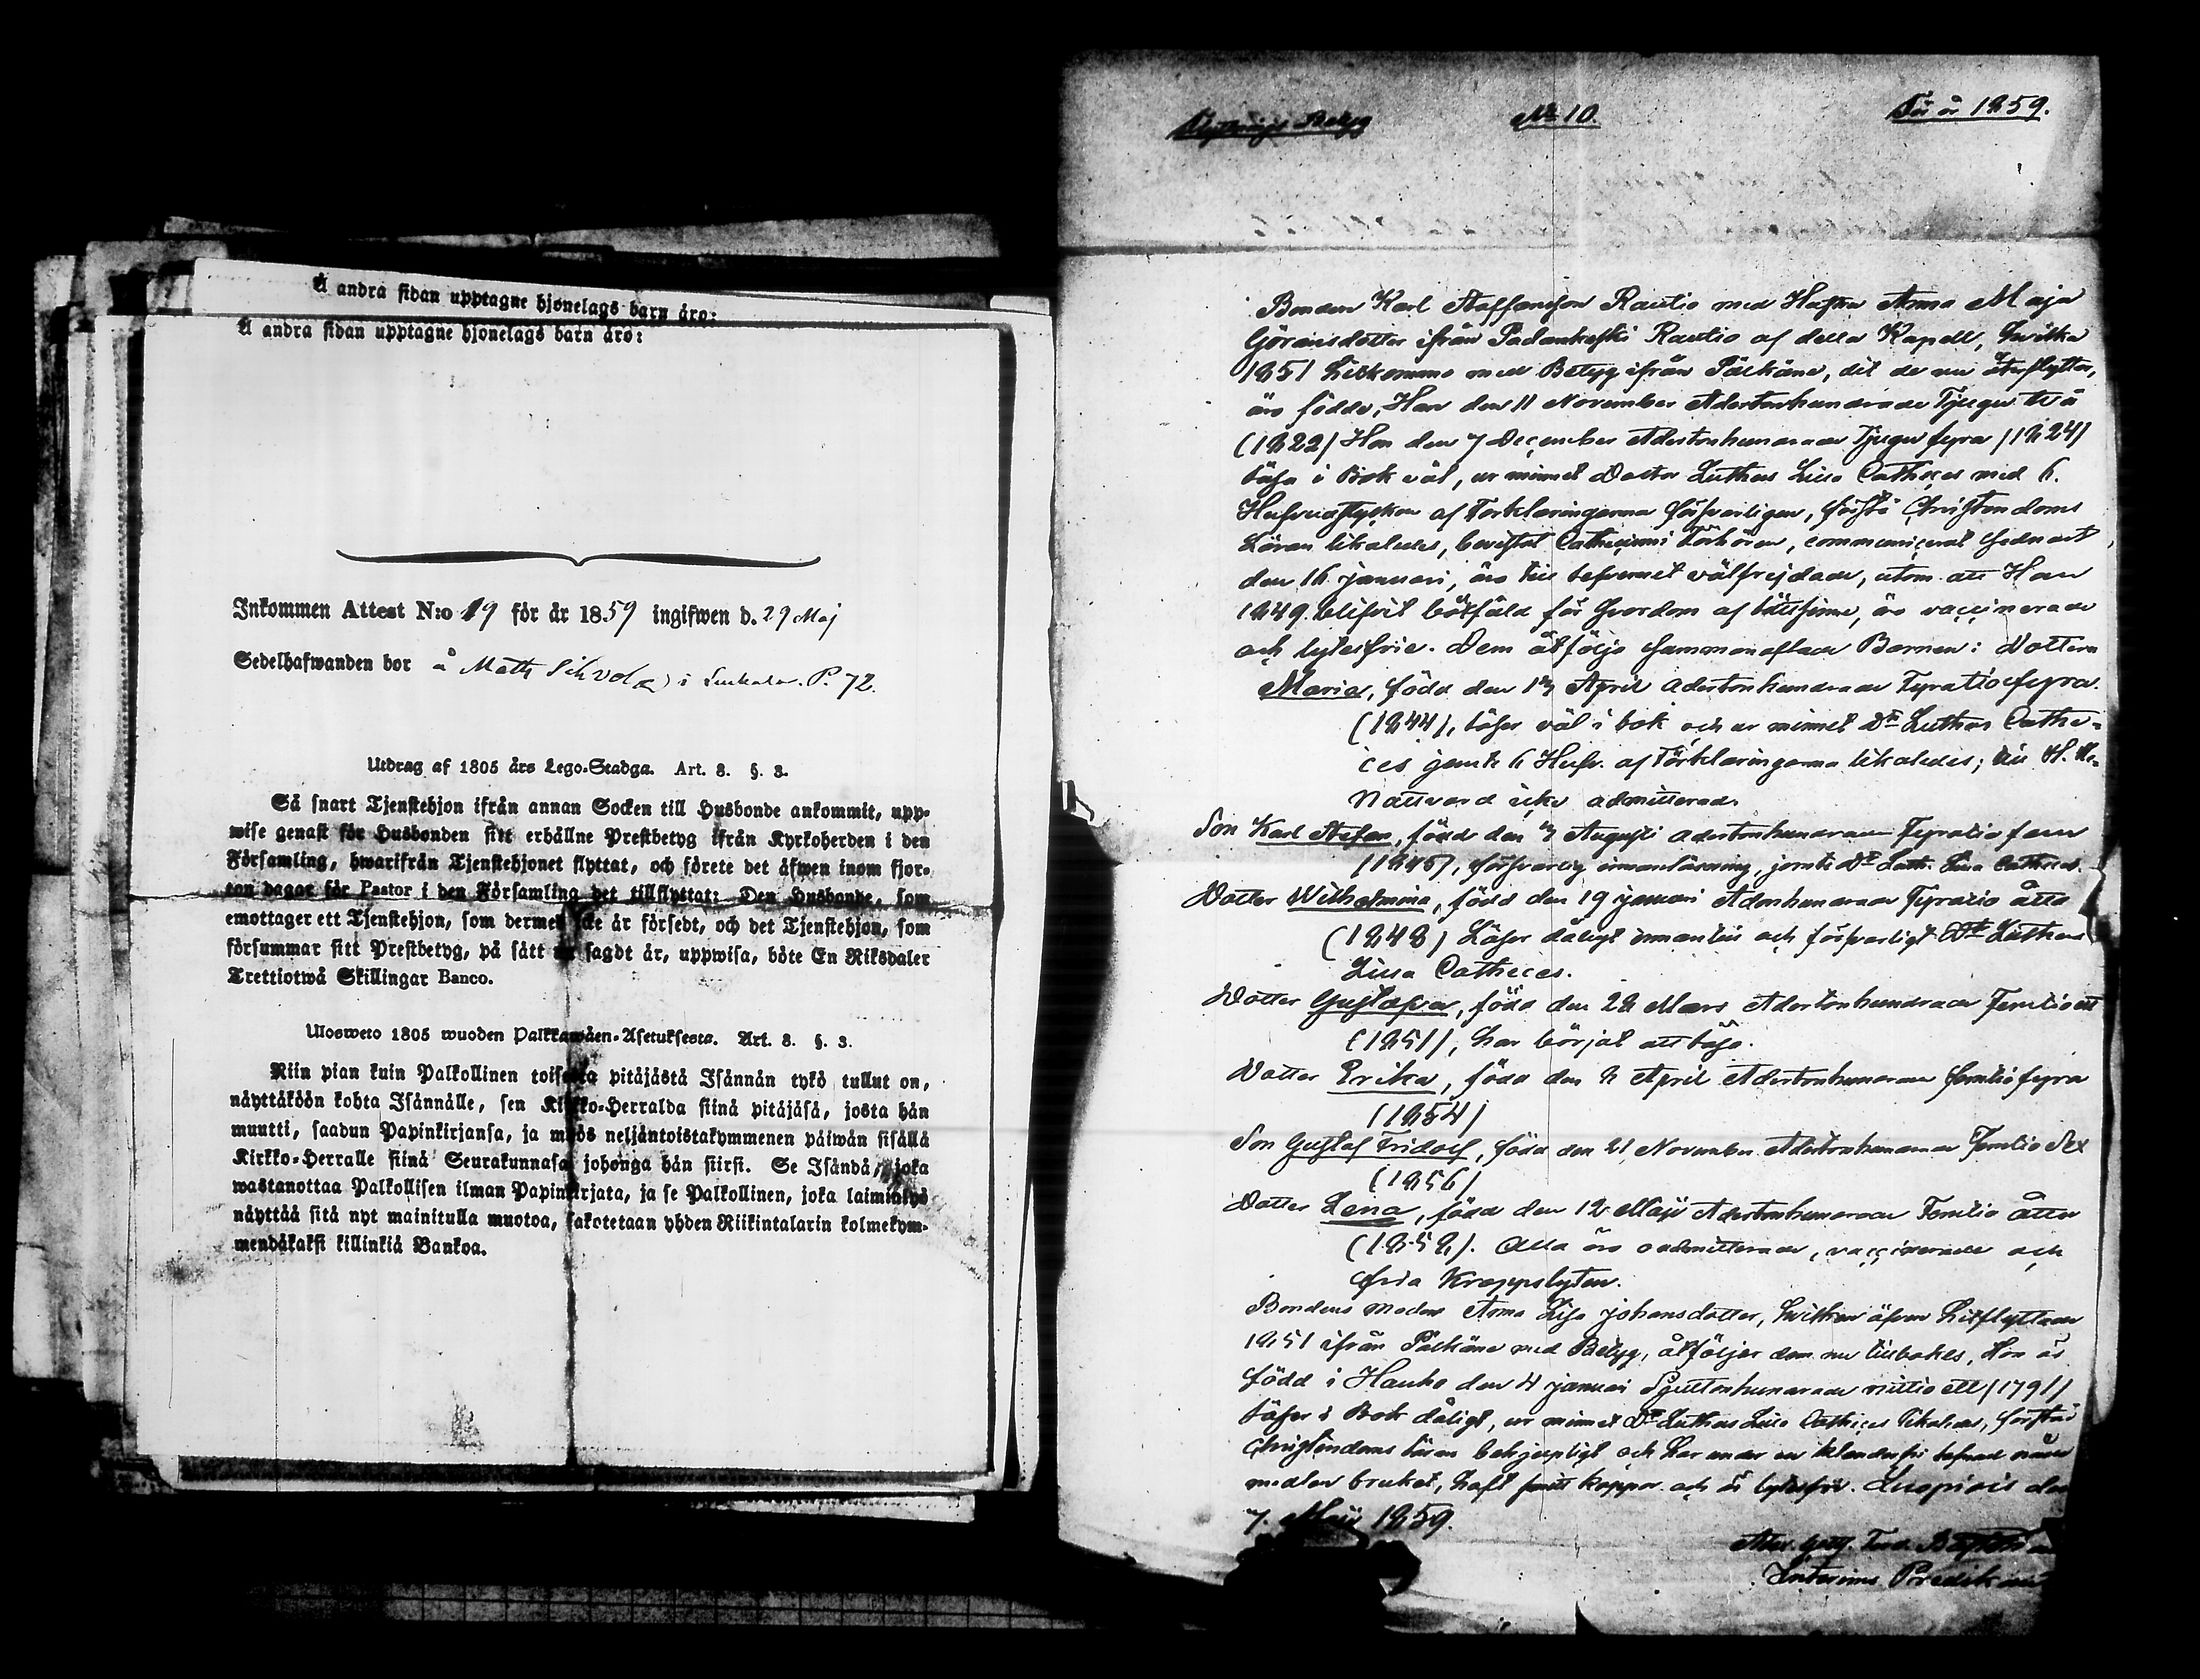 Å andra sidan upptagne hjonelags barn äro:
Å andra sidan upptagne hjonelags barn äro:
Inkommen Attest N:o 19 för år 1859 ingifwen d. 29 Maj
Sedelhafwanden bor å Matts P. 72.
Utdrag af 1805 års Lego-Stadga. Art. 8. §. 3.
Så snart Tjenstehjon ifrån annan Socken till Husbonde ankommit, upp-
wise genast för Husbonden sitt erhållne Prestbetyg ifrån Kyrkoherden i den
Församling, hwarifrån Tjenstehjonet flyttat, och förete det äfwen inom fjor-
ton dagar för Pastor i den Församling det tillflyttat: Den Husbonde, som
emottager ett Tjenstehjon, som dermed icke är försedt, och det Tjenstehjon, som
försummar sitt Prestbetyg, på sätt nu sagdt är, uppwisa, böte En Riksdaler
Trettiotwå Skillingar Banco.
Uloswеto 1805 wuoden Palkkawäen-Asetuksesta. Art. 8. §. 3.
Niin pian kuin Palkollinen toisesta pitäjästä Isännän tykö tullut on,
näyttäköön kohta Isännälle, sen Kirkko-Herralda siinä pitäjäsä, josta hän
muutti, saadun Papinkirjansa, ja myös neljäntoistakymmenen päiwän sisällä
Kirkko-Herralle siinä Seurakunnasa johonga hän siirsi. Se Isändä, joka
wastanottaa Palkollisen ilman Papinkirjata, ja se Palkollinen, joka laiminlyö
näyttää sitä nyt mainitulla muotoa, sakotetaan yhden Riikintalarin kolmekym-
mendäkaksi killinkiä Bankoa.
Flyttnings Betyg No 10. För år 1859.
Bonden Karl Staffansson Rautio med Hustru Anna Maja
Göransdotter ifrån Padankoski Rautio af detta Kapell, hvilka
1851 hitkommo med Betyg ifrån Pälkäne, dit de nu återflytta,
äro födde, Han den 11 November Adertonhundrade Tjugu två
(1822) Hon den 7 December Adertonhundrade Tjugu fyra (1824)
läsa i Bok väl, ur minnet Doctor Luthers Lilla Catheces med 6.
Hufvudstycken af Förklaringarna försvarligen, förstå Christendoms
Läran likaledes, bevistat Cathecismi förhören, communicerat sednast
den 16 januari, äro till lefvernet välfrejdade, utom att Han
1849 blifvit bötfäld för hordom af lättsinne, äro vaccinerade
och lytesfrie. Dem åtfölja sammanaflade Barnen: Dottern
Maria, född den 13 April adertonhundrade Fyratiofyra.
(1844), läser väl i bok och ur minnet Dr Luthers Cathe-
ces jemte 6 Hufv. af Förklaringarna likaledes; till H.
Nattvard icke admitterad.
Son Karl Stefan, född den 3 Augusti adertonhundrade Fyratio fem
(1845), försvarlig innanläsning, jemte Dr Luth. Lilla Catheces.
Dotter Wilhelmina, född den 19 januari Adertonhundrade Fyratio åtta
(1848) Läser dåligt innantill och försvarligt Dr Luthers
Lilla Catheces.
Dotter Gustafva, född den 28 Mars Adertonhundrade Femtio ett
(1851), har börjat att läsa.
Dotter Erika, född den 8 April Adertonhundrade femtiofyra
(1854)
Son Gustaf Fridolf, född den 21 November Adertonhundrade Femtio Sex
(1856)
Dotter Lena, född den 12 Maji Adertonhundrade Femtio åtta
(1858). Alla äro oadmitterade, vaccinerade och
fria Kroppslyten.
Bondens moder Anna Lisa johansdotter, hvilken äfven hitflyttade
1851 ifrån Pälkäne med Betyg, åtföljer dem nu tillbakes, Hon är
född i Hauho den 4 januari Sjuttonhundrade nittio ett (1791)
läser i Bok dåligt, ur minnet Dr Luthers Lilla Catheces likaledes, förstår
Christendoms läran behjelpligt och har under en klanderfri lefnad nåde
medlen brukat, haft koppor och är lytesfri. Luopiois den
7. Maji 1859.
Alex. Gust. Ferd.
Interims Predikant